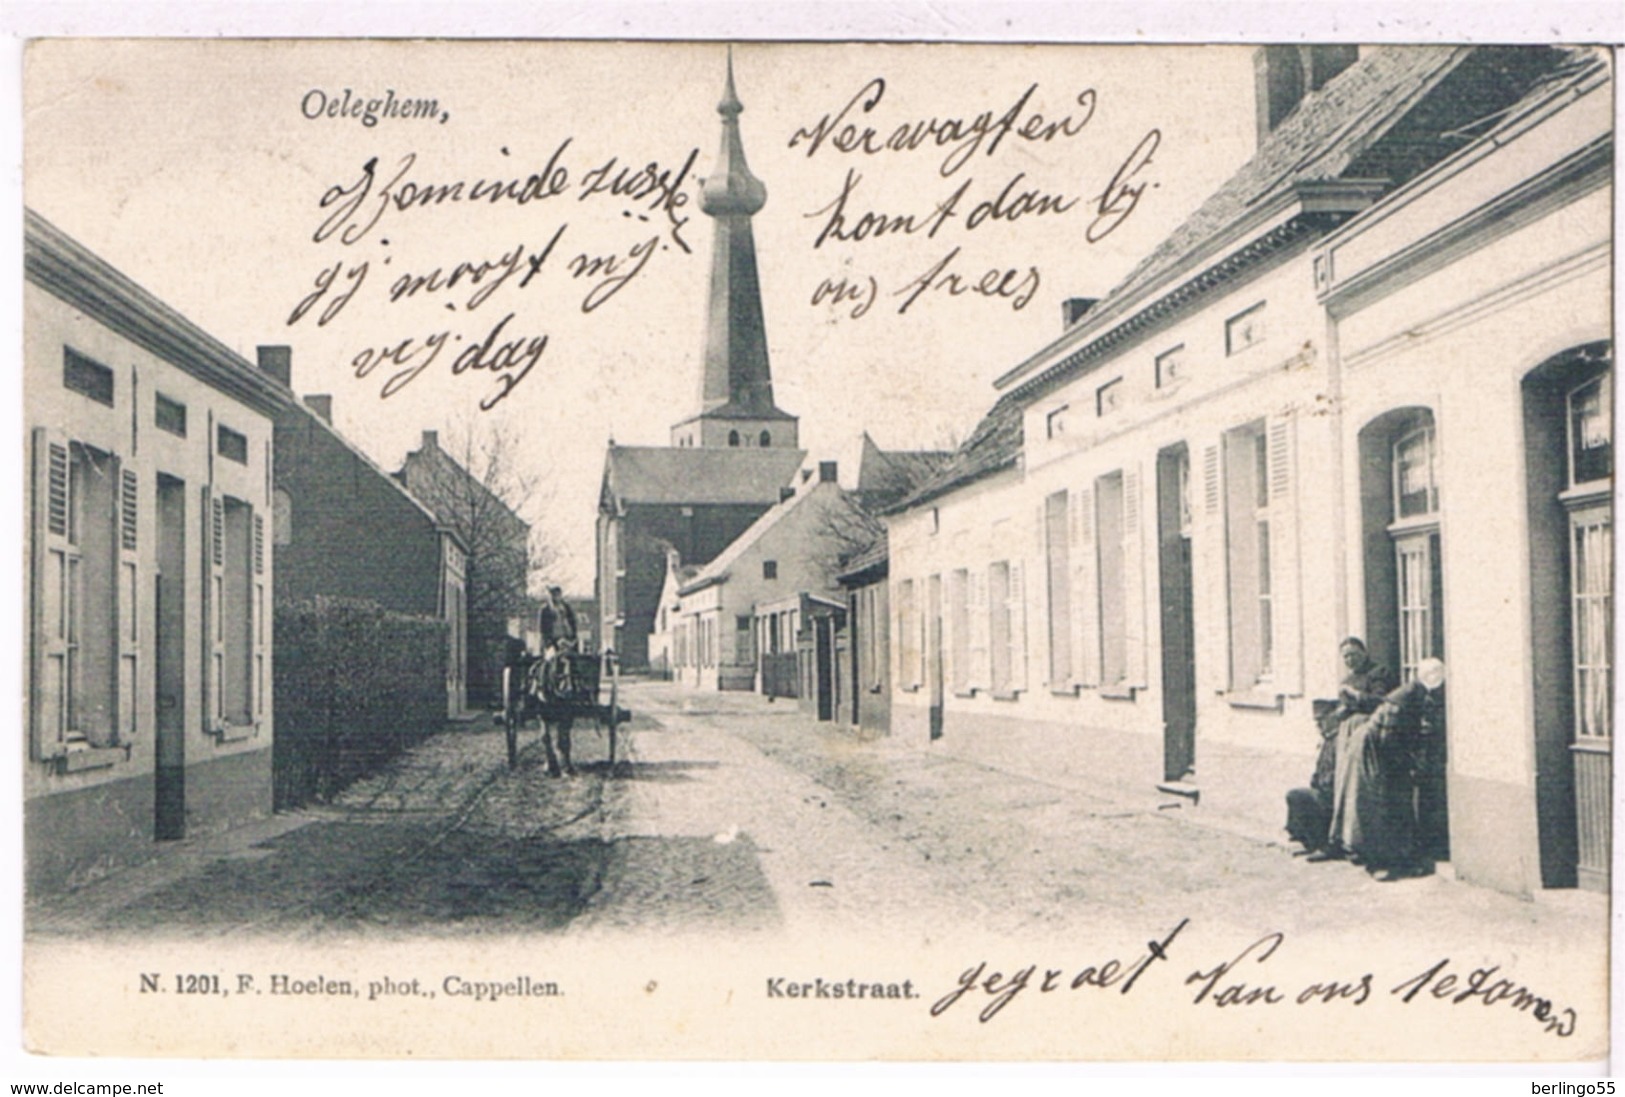 Oeleghem,
Bzeminde zuster
gij moogt mij
vrij dag
Verwagten
komt dan bij
ons trees
N. 1201, F. Hoelen, phot., Cappellen.
Kerkstraat.
gegroet Van ons tezamen
www.delcampe.net
berlingo55